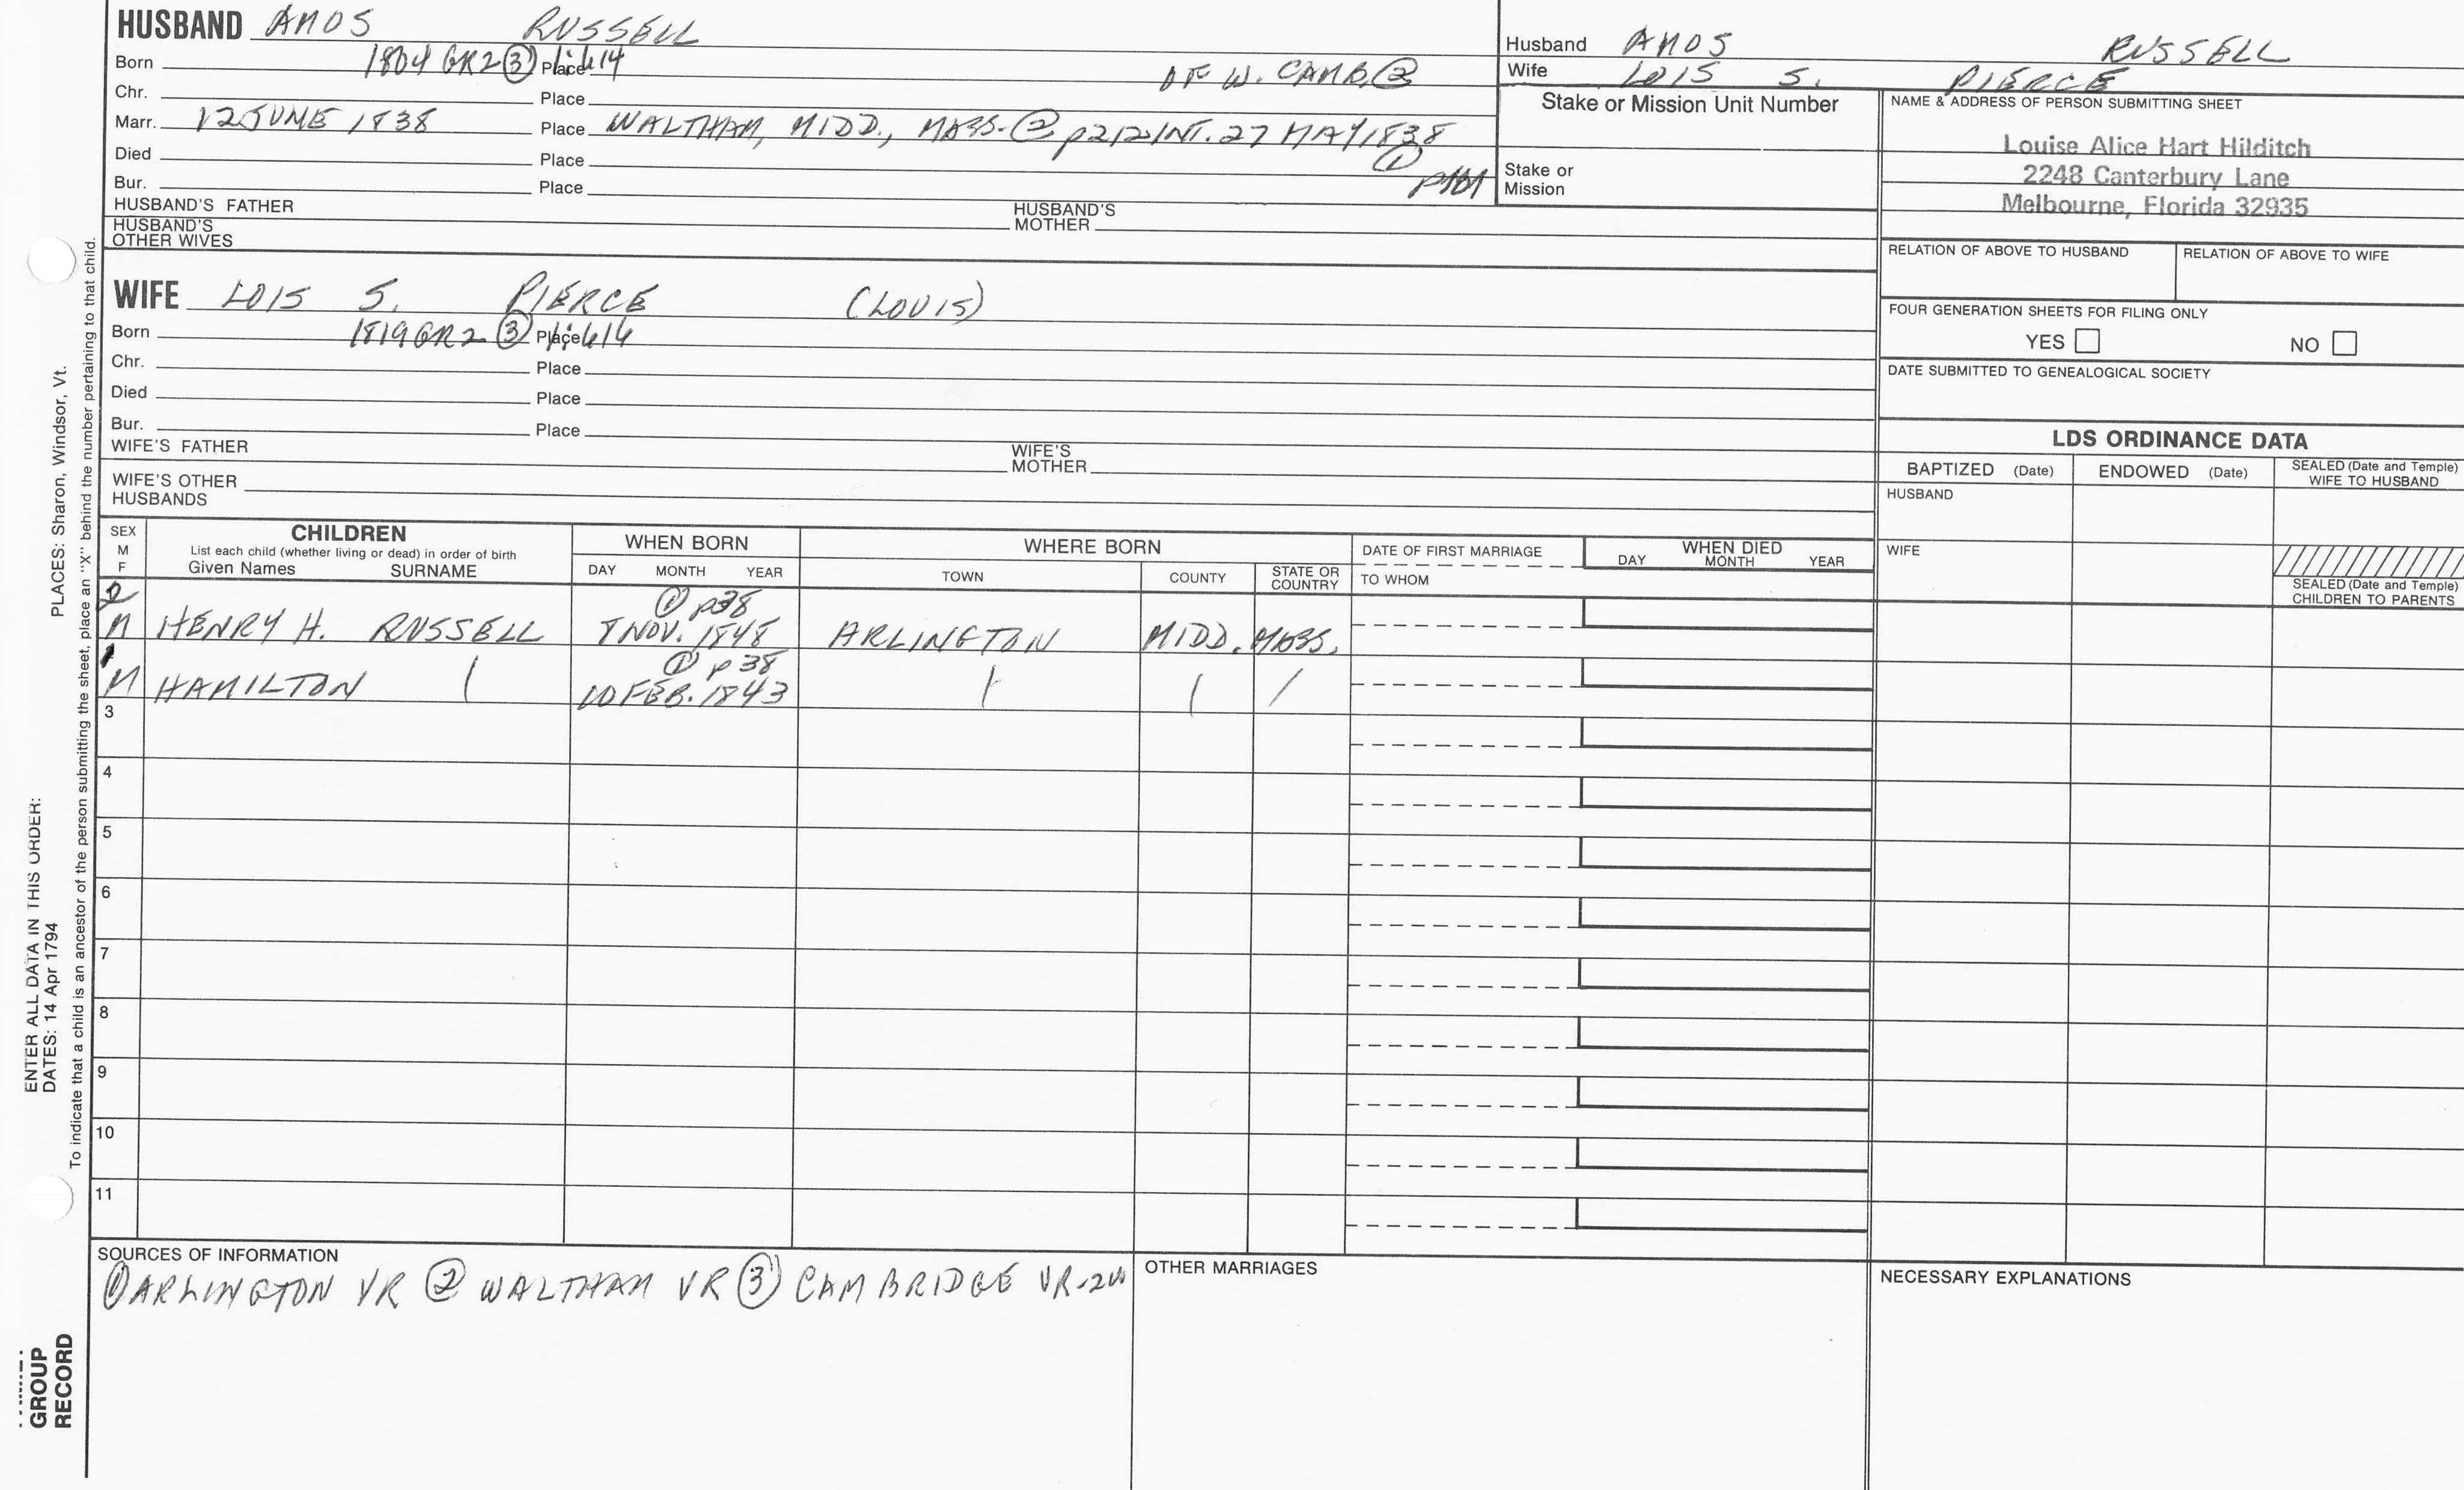 HUSBAND AMOS RUSSELL
Born 1804 GR2 ③ Place p614 OF W. CAMB. ②
Chr. Place
Marr. 12 JUNE 1838 Place WALTHAM, MIDD., MASS. ② p212 INT. 27 MAY 1838
①
Died Place
Bur. Place
HUSBAND'S FATHER HUSBAND'S MOTHER
HUSBAND'S OTHER WIVES
WIFE LOIS S. PIERCE (LOUIS)
Born 1819 GR2 ③ Place p614
Chr. Place
Died Place
Bur. Place
WIFE'S FATHER WIFE'S MOTHER
WIFE'S OTHER HUSBANDS
Husband AMOS RUSSELL
Wife LOIS S. PIERCE
Stake or Mission Unit Number
Stake or Mission
NAME & ADDRESS OF PERSON SUBMITTING SHEET
Louise Alice Hart Hilditch
2248 Canterbury Lane
Melbourne, Florida 32935
RELATION OF ABOVE TO HUSBAND RELATION OF ABOVE TO WIFE
FOUR GENERATION SHEETS FOR FILING ONLY
YES NO
DATE SUBMITTED TO GENEALOGICAL SOCIETY
LDS ORDINANCE DATA
BAPTIZED (Date) ENDOWED (Date) SEALED (Date and Temple) WIFE TO HUSBAND
HUSBAND
WIFE
SEALED (Date and Temple) CHILDREN TO PARENTS
SEX M F
CHILDREN
List each child (whether living or dead) in order of birth
Given Names SURNAME
WHEN BORN
DAY MONTH YEAR
WHERE BORN
TOWN COUNTY STATE OR COUNTRY
DATE OF FIRST MARRIAGE
TO WHOM
WHEN DIED
DAY MONTH YEAR
2 ① p38
M HENRY H. RUSSELL 7 NOV. 1848 ARLINGTON MIDD. MASS.
1 ① p38
M HAMILTON 10 FEB. 1843
3
4
5
6
7
8
9
10
11
SOURCES OF INFORMATION
① ARLINGTON VR ② WALTHAM VR ③ CAMBRIDGE VR
OTHER MARRIAGES
NECESSARY EXPLANATIONS
ENTER ALL DATA IN THIS ORDER:
DATES: 14 Apr 1794 PLACES: Sharon, Windsor, Vt.
To indicate that a child is an ancestor of the person submitting the sheet, place an "X" behind the number pertaining to that child.
GROUP
RECORD